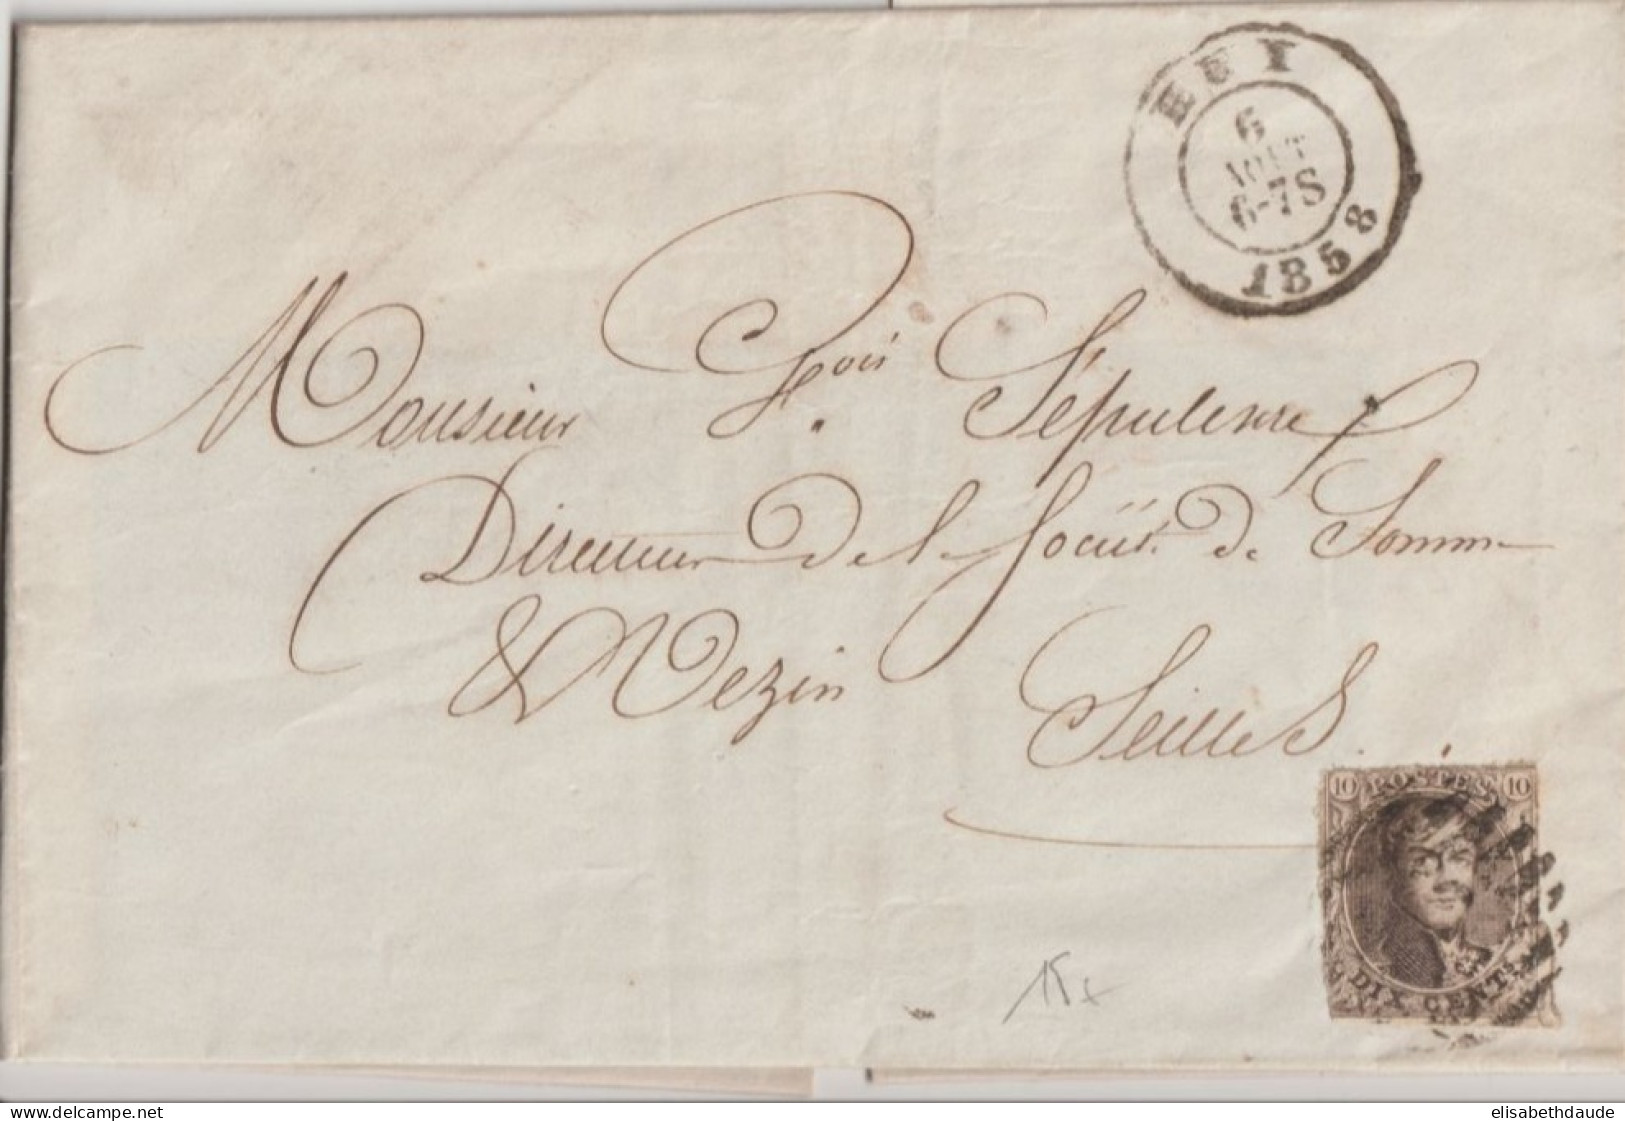 HUY
6
AOUT
6-7S
1858
Monsieur fçois Sépulcre
Directeur de la Société de Somme
& Mezin
Seilles.
10 POSTES 10
DIX CENTS
15
www.delcampe.net
elisabethdaude